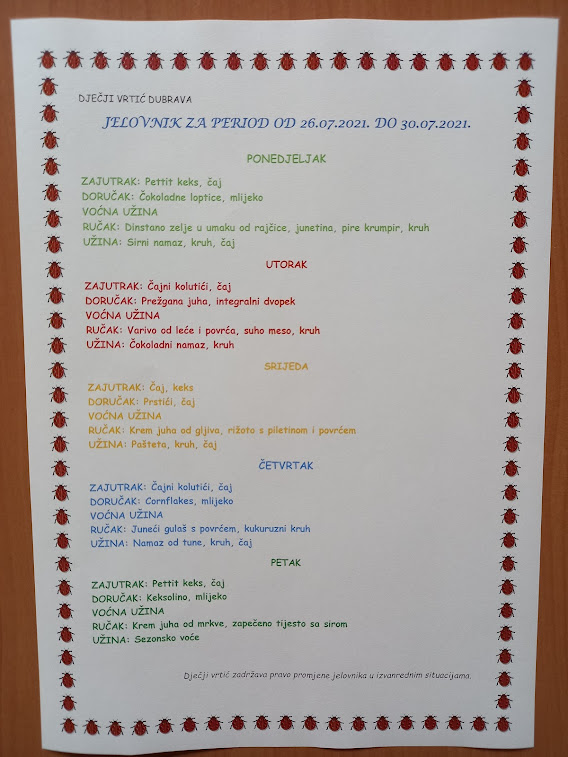 DJEČJI VRTIĆ DUBRAVA
JELOVNIK ZA PERIOD OD 26.07.2021. DO 30.07.2021.
PONEDJELJAK
ZAJUTRAK: Pettit keks, čaj
DORUČAK: Čokoladne loptice, mlijeko
VOĆNA UŽINA
RUČAK: Dinstano zelje u umaku od rajčice, junetina, pire krumpir, kruh
UŽINA: Sirni namaz, kruh, čaj
UTORAK
ZAJUTRAK: Čajni kolutići, čaj
DORUČAK: Prežgana juha, integralni dvopek
VOĆNA UŽINA
RUČAK: Varivo od leće i povrća, suho meso, kruh
UŽINA: Čokoladni namaz, kruh
SRIJEDA
ZAJUTRAK: Čaj, keks
DORUČAK: Prstići, čaj
VOĆNA UŽINA
RUČAK: Krem juha od gljiva, rižoto s piletinom i povrćem
UŽINA: Pašteta, kruh, čaj
ČETVRTAK
ZAJUTRAK: Čajni kolutići, čaj
DORUČAK: Cornflakes, mlijeko
VOĆNA UŽINA
RUČAK: Juneći gulaš s povrćem, kukuruzni kruh
UŽINA: Namaz od tune, kruh, čaj
PETAK
ZAJUTRAK: Pettit keks, čaj
DORUČAK: Keksolino, mlijeko
VOĆNA UŽINA
RUČAK: Krem juha od mrkve, zapečeno tijesto sa sirom
UŽINA: Sezonsko voće
Dječji vrtić zadržava pravo promjene jelovnika u izvanrednim situacijama.